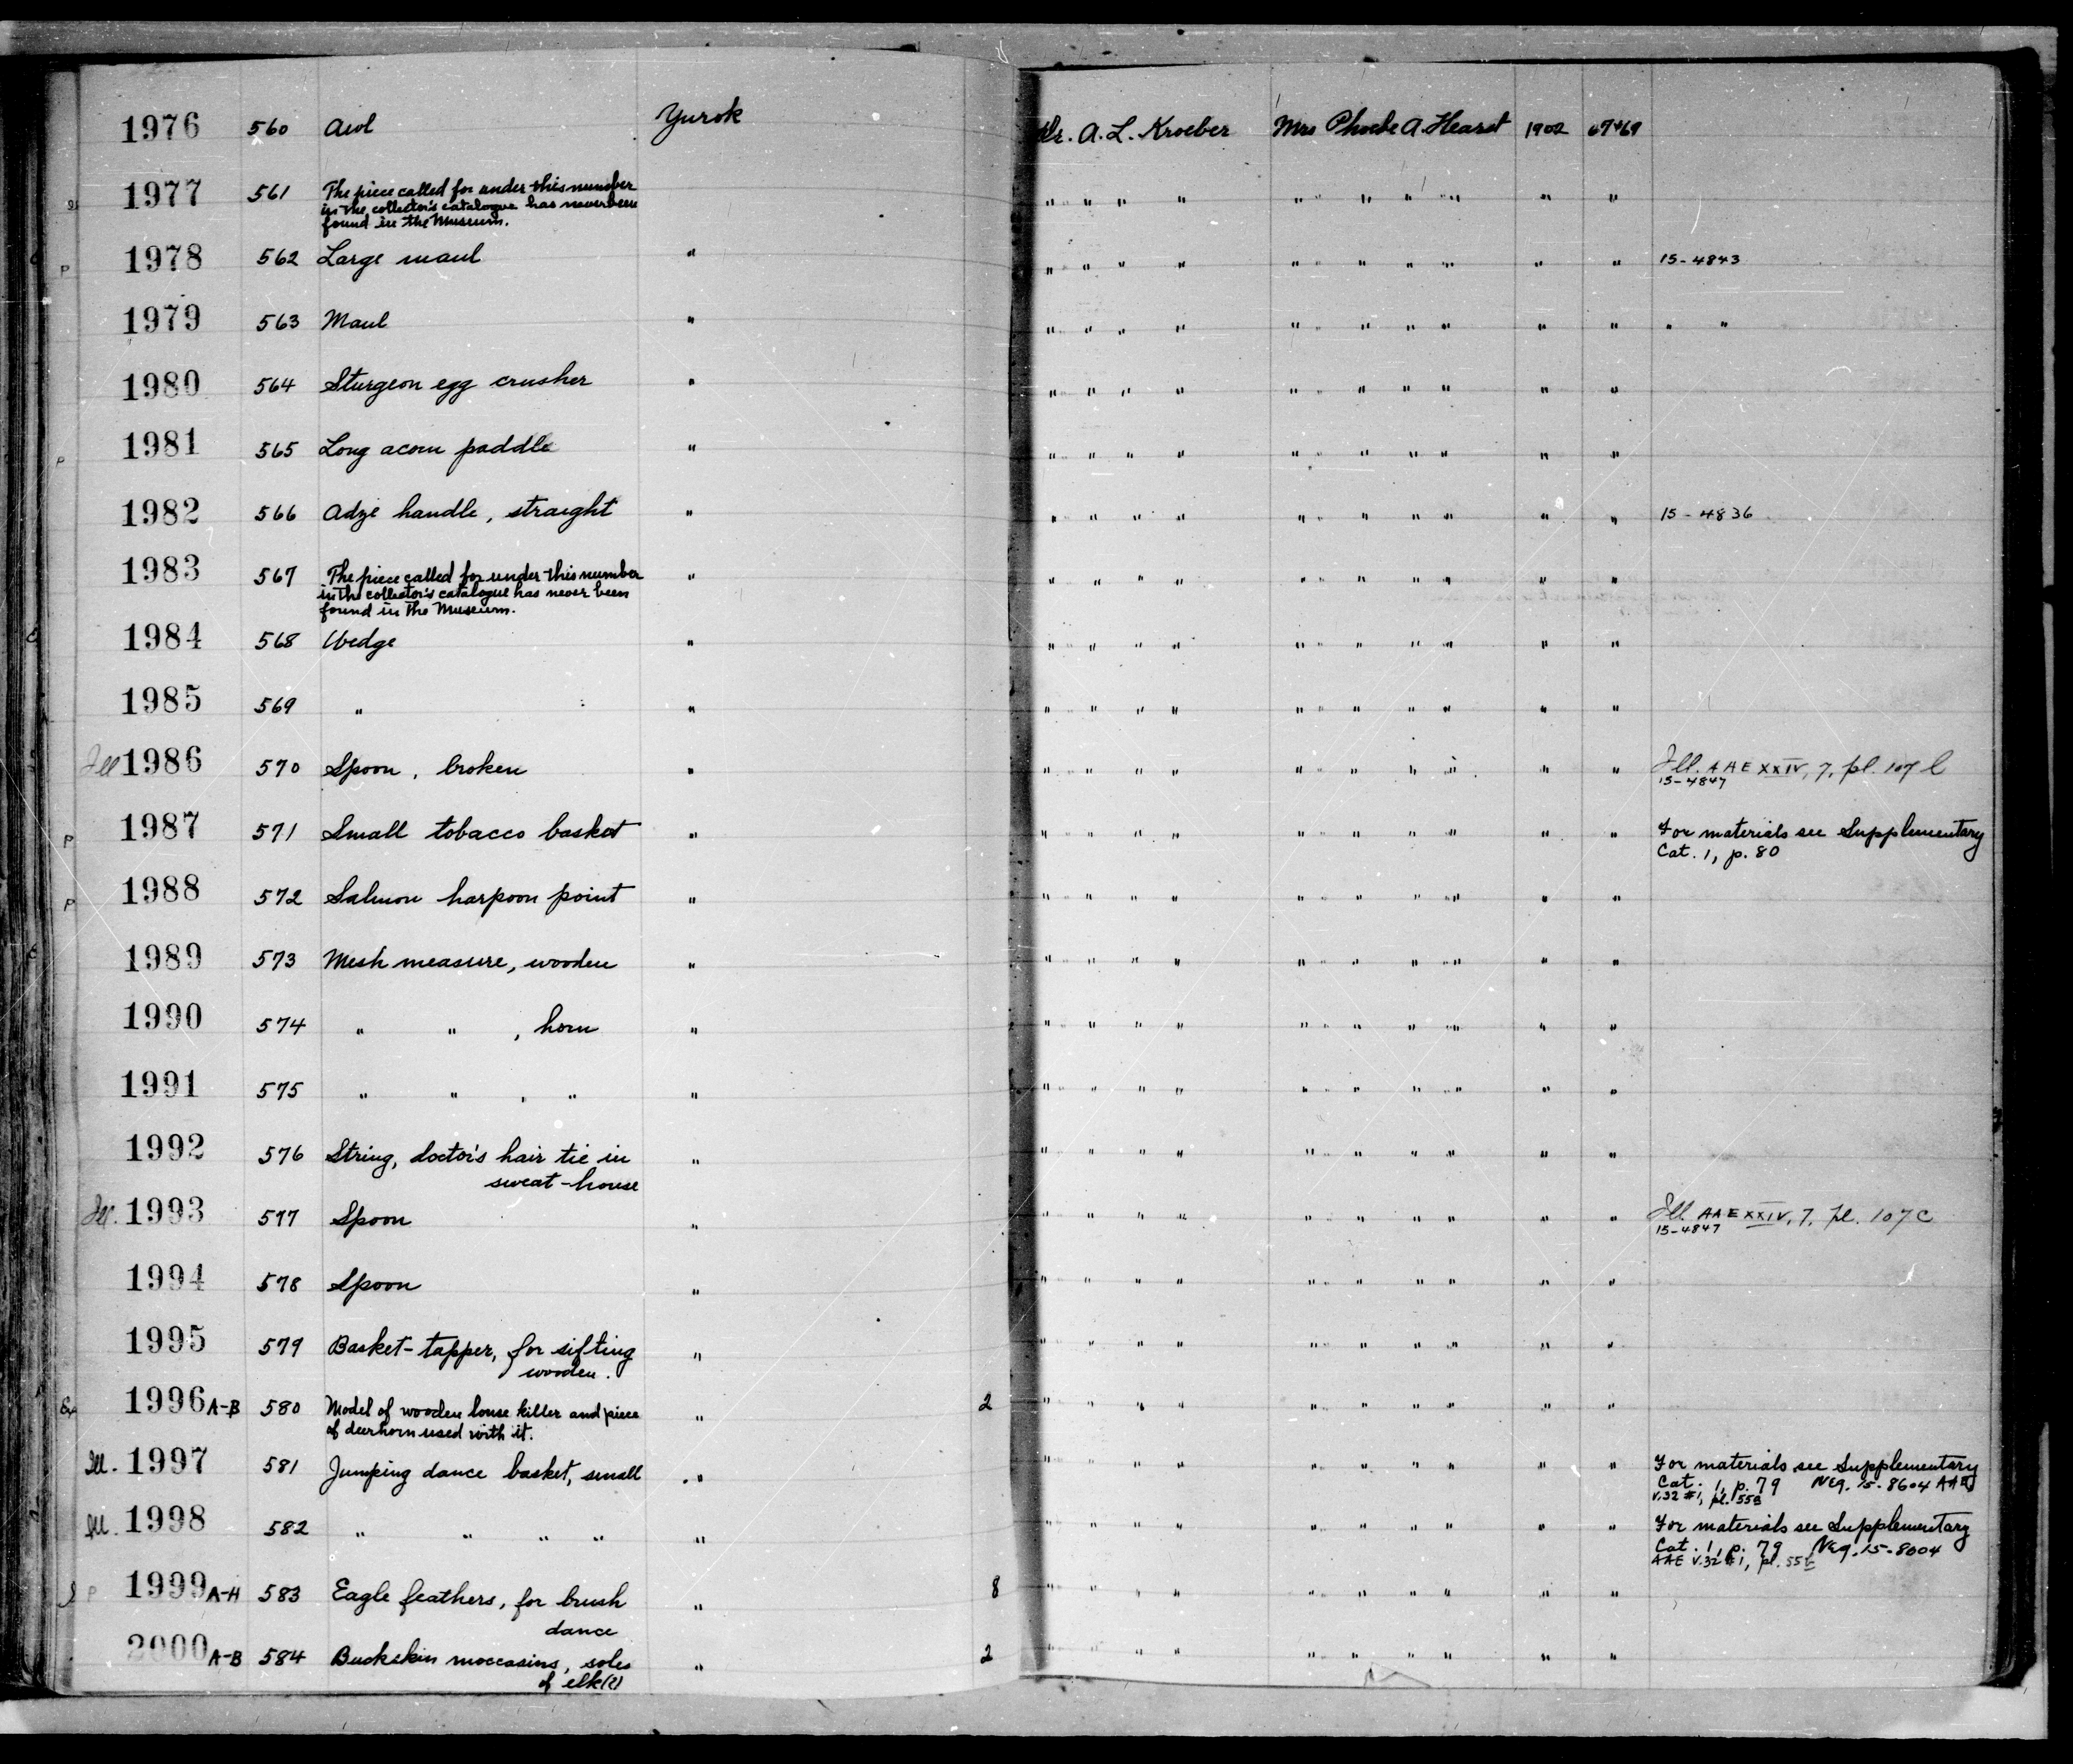 1976 560 Awl Yurok Dr. A. L. Kroeber Mrs Phoebe A. Hearst 1902 67+69
1977 561 The piece called for under this number
in the collector's catalogue has never been
found in the Museum. " " " " " " " " " " "
P 1978 562 Large maul " " " " " " " " " " " " 15-4843
1979 563 Maul " " " " " " " " " " " " " "
1980 564 Sturgeon egg crusher " " " " " " " " " " " "
P 1981 565 Long acorn paddle " " " " " " " " " " " "
1982 566 Adze handle, straight " " " " " " " " " " " " 15-4836
1983 567 The piece called for under this number
in the collector's catalogue has never been
found in the Museum. " " " " " " " " " " " "
1984 568 Wedge " " " " " " " " " " " "
1985 569 " " " " " " " " " " " " "
Ill 1986 570 Spoon, broken " " " " " " " " " " " " Ill. AAE XXIV, 7, pl. 107 l
15-4847
P 1987 571 Small tobacco basket " " " " " " " " " " " " For materials see Supplementary
Cat. 1, p. 80
P 1988 572 Salmon harpoon point " " " " " " " " " " " "
1989 573 Mesh measure, wooden " " " " " " " " " " " "
1990 574 " " , horn " " " " " " " " " " " "
1991 575 " " , " " " " " " " " " " " " "
1992 576 String, doctor's hair tie in
sweat-house " " " " " " " " " " " "
Ill. 1993 577 Spoon " " " " " " " " " " " " Ill. AAE XXIV, 7, pl. 107 c
15-4847
1994 578 Spoon " " " " " " " " " " " "
1995 579 Basket-tapper, for sifting
wooden. " " " " " " " " " " " "
1996 A-B 580 Model of wooden louse killer and piece
of deerhorn used with it. " 2 " " " " " " " " " " "
Ill. 1997 581 Jumping dance basket, small " " " " " " " " " " " " For materials see Supplementary
Cat. 1, p. 79 Neg. 15-8604 AAE
V.32 #1, pl. 55B
Ill. 1998 582 " " " " " " " " " " " " " " " " For materials see Supplementary
Cat. 1, p. 79 Neg. 15-8604
AAE V.32 #1, pl. 55E
P 1999 A-H 583 Eagle feathers, for brush
dance " 8 " " " " " " " " " " "
2000 A-B 584 Buckskin moccasins, soles
of elk(?) " 2 " " " " " " " " " " "